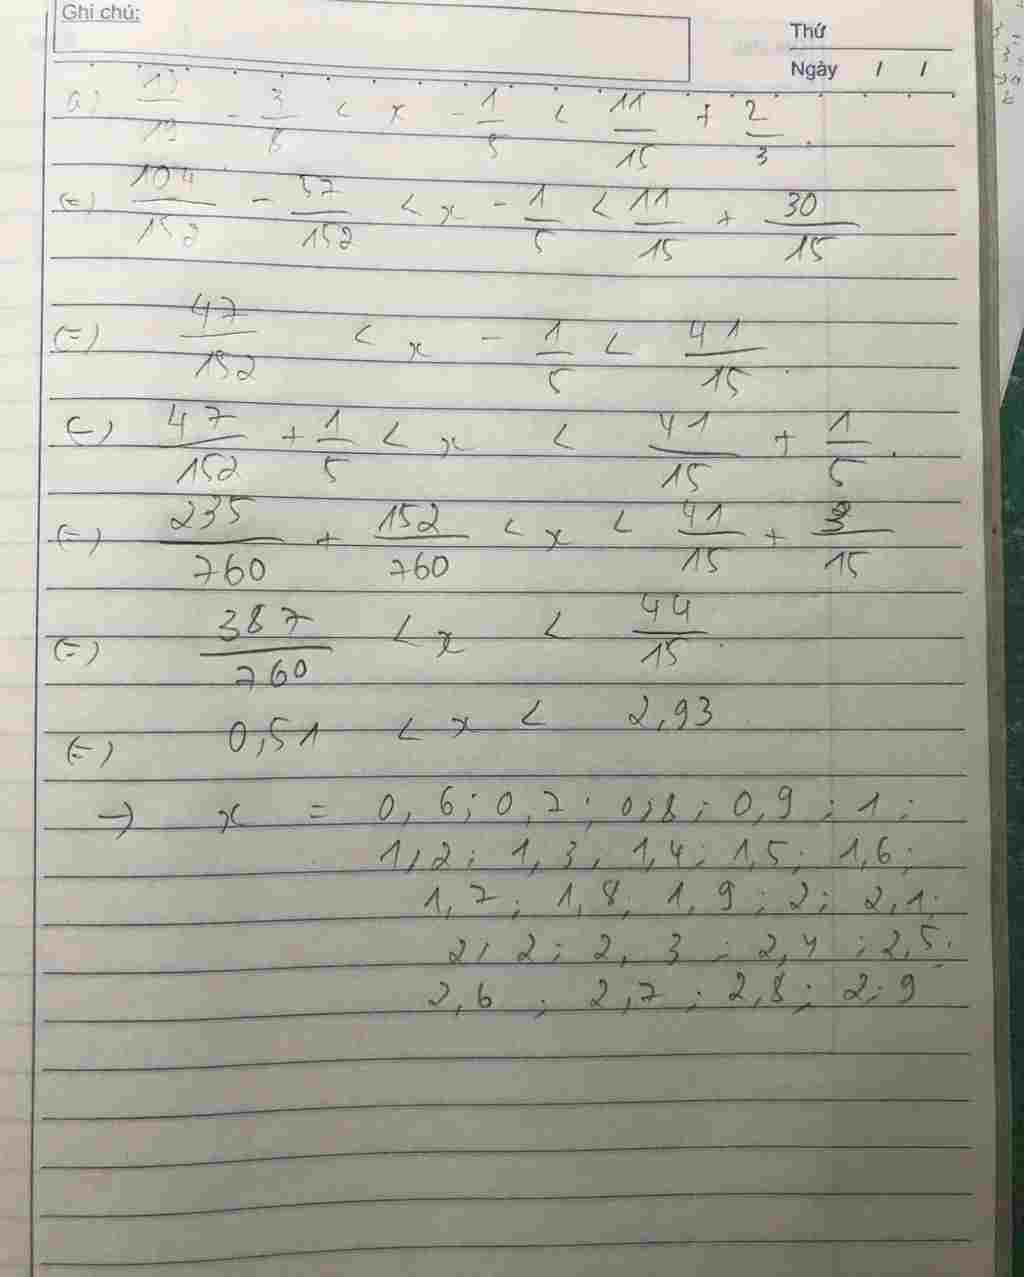 Ghi chú:
Thứ
Ngày / /
a) 13/19 - 3/8 < x - 1/5 < 11/15 + 2/3.
(=) 104/152 - 57/152 < x - 1/5 < 11/15 + 30/15
(=) 47/152 < x - 1/5 < 41/15.
(=) 47/152 + 1/5 < x < 41/15 + 1/5.
(=) 235/760 + 152/760 < x < 41/15 + 3/15
(=) 387/760 < x < 44/15.
(=) 0,51 < x < 2,93
→ x = 0,6; 0,7; 0,8; 0,9; 1;
1,2; 1,3, 1,4; 1,5; 1,6;
1,7; 1,8; 1,9; 2; 2,1;
2,2; 2,3; 2,4; 2,5;
2,6; 2,7; 2,8; 2;9